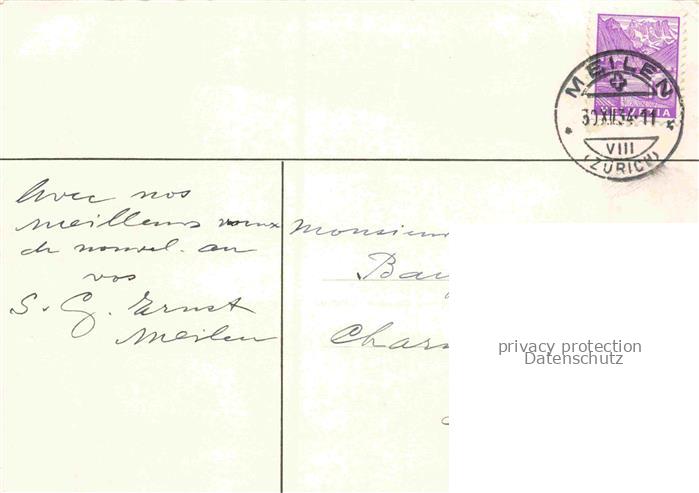 MEILEN
30.XII.34-11
VIII
(ZÜRICH)
HELVETIA
Avec nos
meilleurs voeux
de nouvel. an
vos
S. G. Ernst
Meilen
Monsieur
Bau
Char
privacy protection
Datenschutz